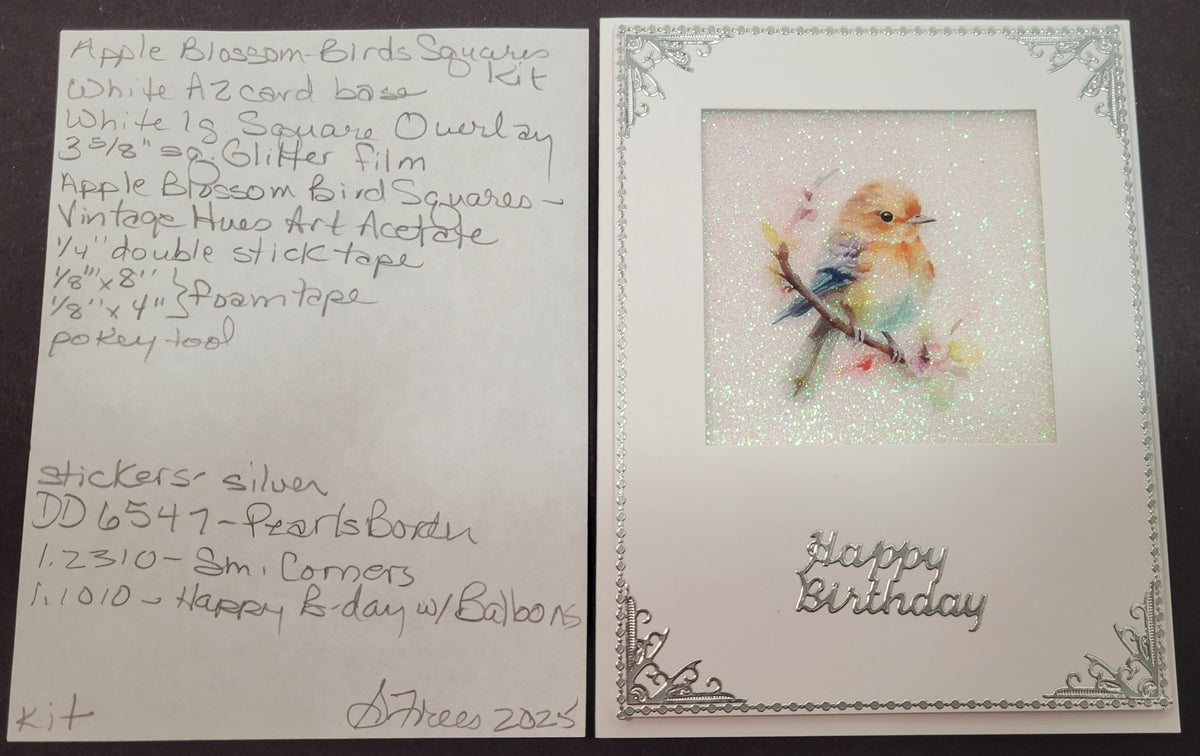 Apple Blossom-Birds Squares
Kit
White A2 card base
White lg. Square Overlay
3 5/8" sq. Glitter film
Apple Blossom Bird Squares -
Vintage Hues Art Acetate
1/4" double stick tape
1/8"x 8" } foam tape
1/8"x 4"
pokey tool
stickers - silver
DD6547 - Pearls Border
1.2310 - Sm. Corners
1.1010 - Happy B-day w/ Balloons
Kit
SFrees 2025
Happy
Birthday